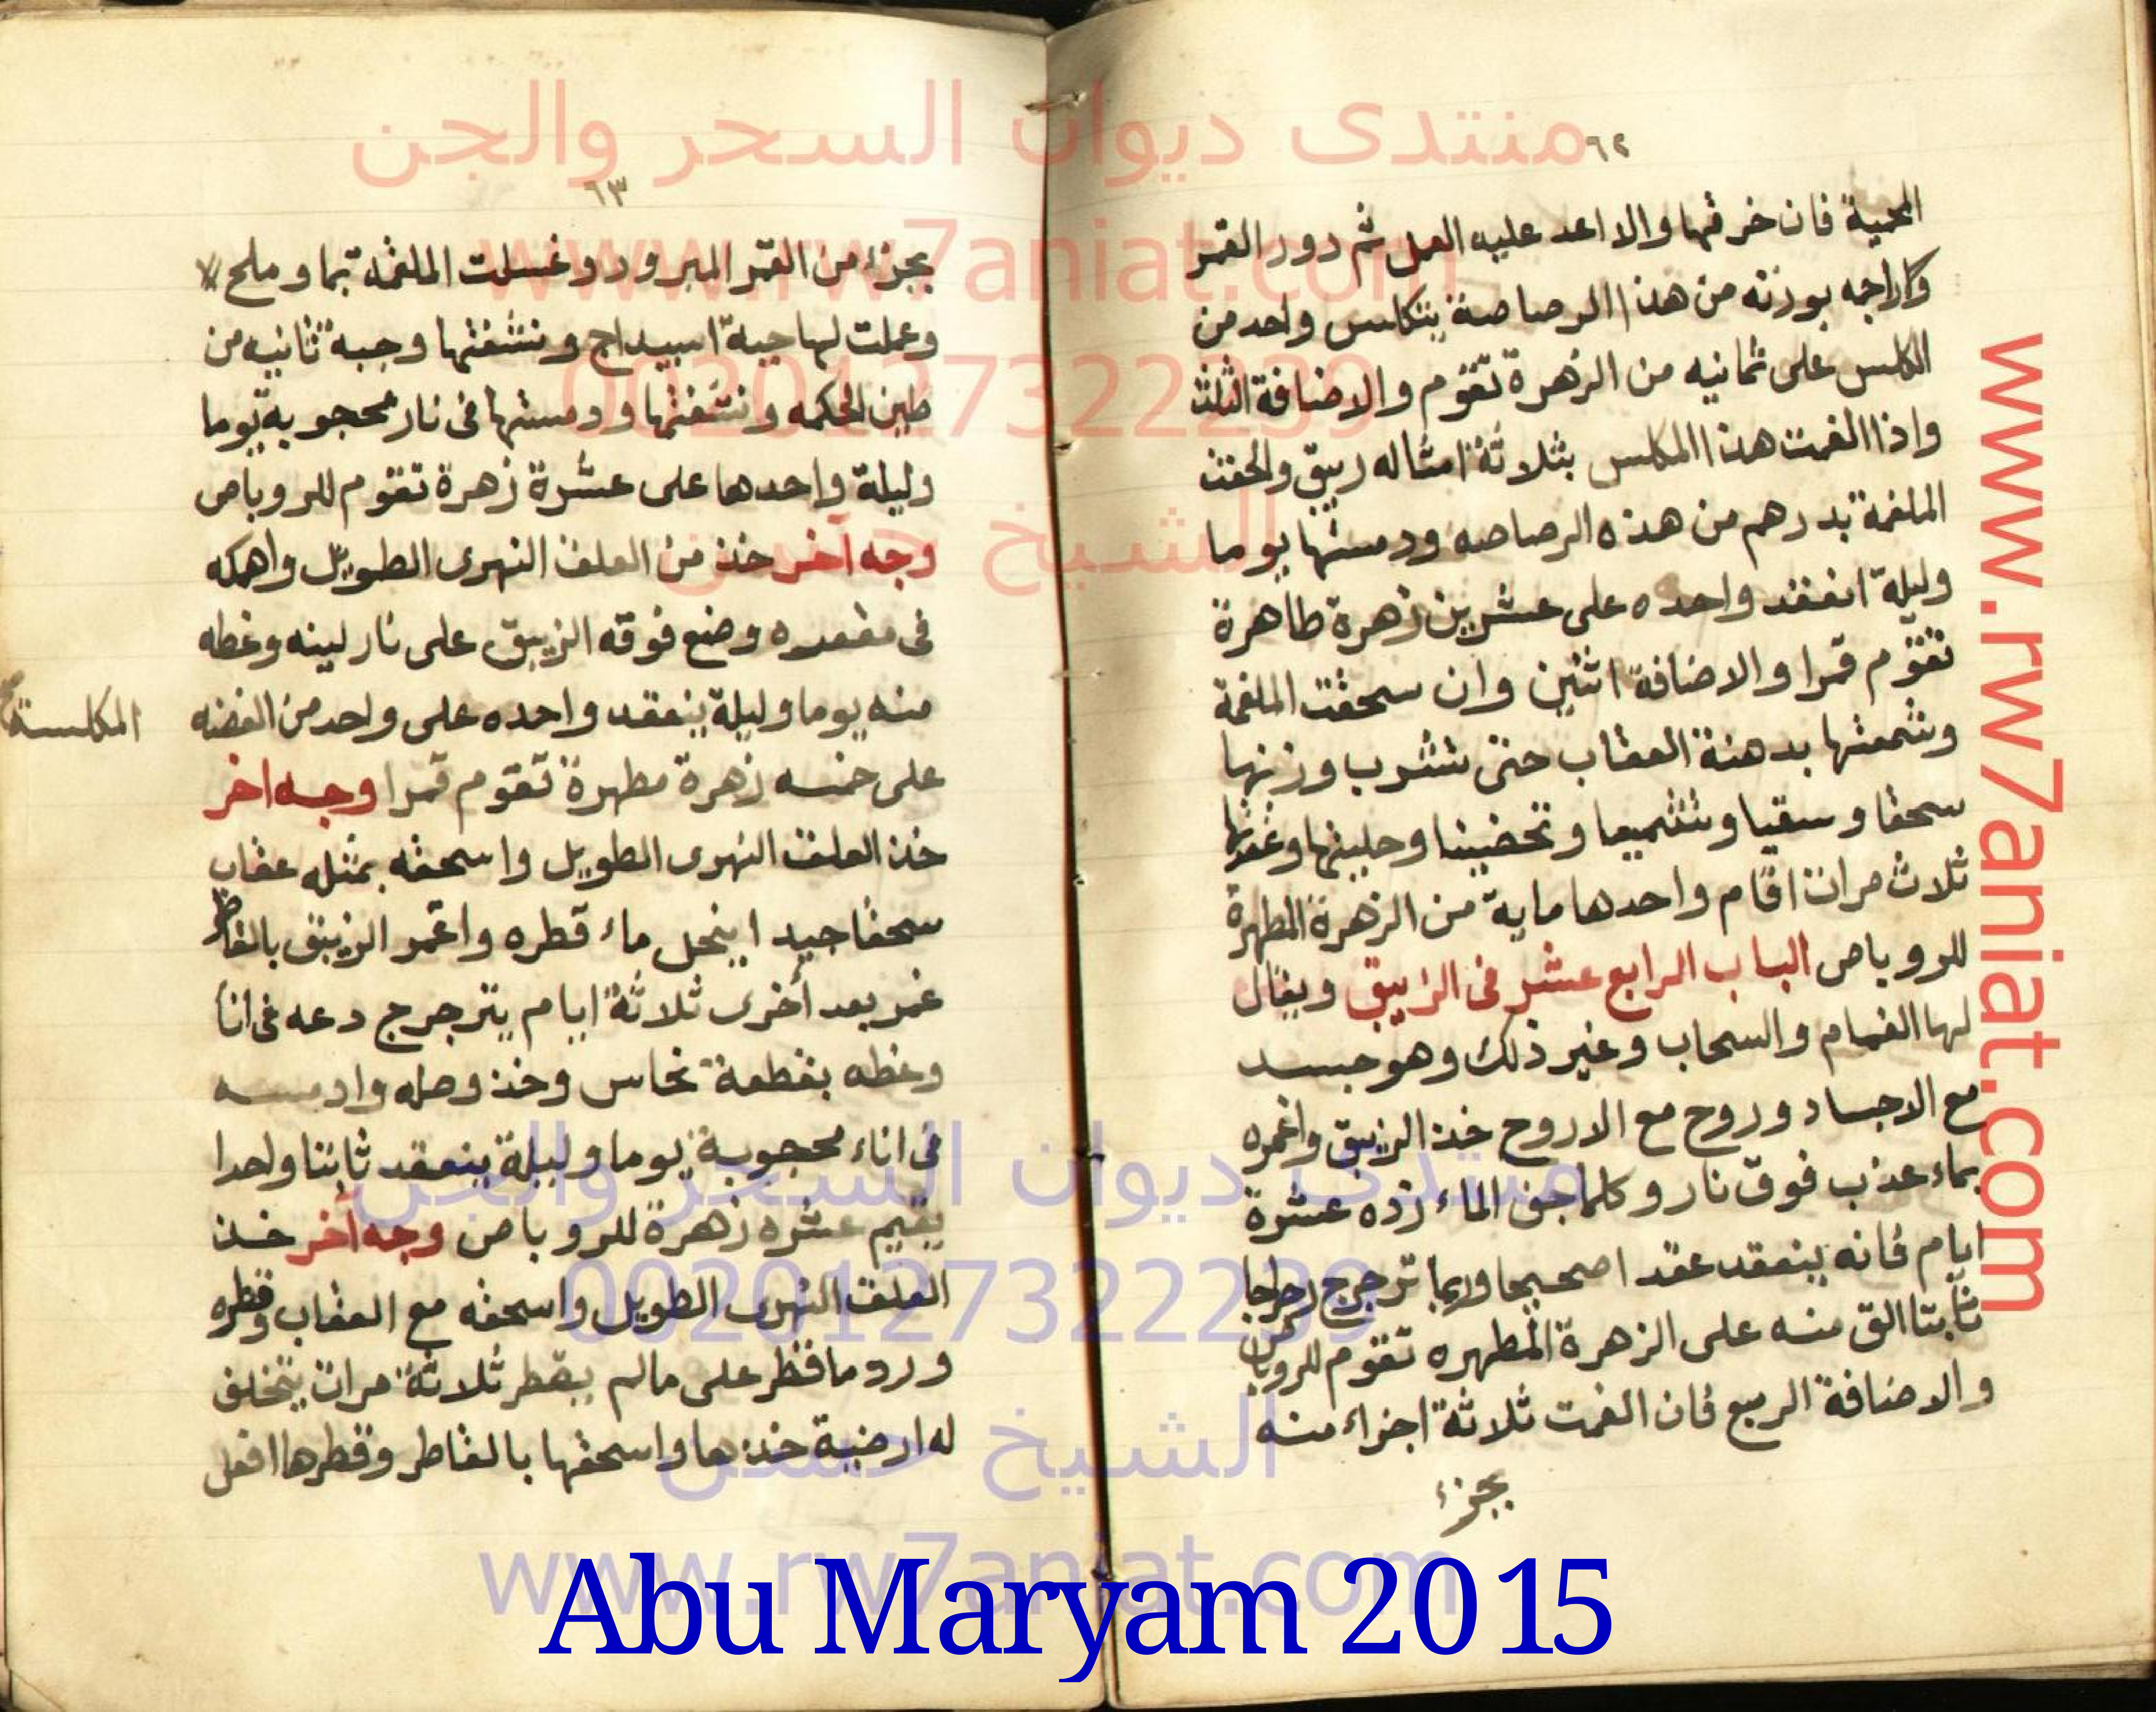 ٦٢
المحمية فان خرقتها والا اعد عليه العمل ثم دور القمر
وكاراجه بوزنه من هذا الرصاصة يتكلس واحد من
الكلس على ثمانيه من الزهرة تقوم والاضافة الثلث
واذا الغمت هذا المكلس بثلاثة امثاله زيبق والحقت
الملغمة بدرهم من هذه الرصاصه ودمستها يوما
وليلة انعقد واحده على عشرين زهرة طاهرة
تقوم قمرا والاضافة اثنين وان سحقت الملغمة
وشمعتها بدهنة العقاب حتى تشرب وزنها
سحقا وسقيا وتشميعا وتحضينا وحليتها وعقدتها
ثلاث مرات اقام واحدها ماية من الزهرة المطهرة
للروباص الباب الرابع عشر فى الزيبق ويقال
لها الغمام والسحاب وغير ذلك وهو جسد
مع الاجساد وروح مع الاروح خذ الزيبق واغمره
بماء عذب فوق نار وكلما جف الماء زده عشرة
ايام فانه ينعقد عقد اصحيحا وربما ترجرج رجراجا
ثابتا الق منه على الزهرة المطهره تقوم للروباص
والاضافة الربع فان الغمت ثلاثة اجزاء منه
بجزء
٦٣
بجزء من القمر المبرود وغسلت الملغمه بما وملح
وعملت لها جبة اسبيداج ونشفتها وجبة ثانيه من
طين الحكمه ونشفتها ودمستها فى نار محجوبة يوما
وليلة واحدها على عشرة زهرة تقوم للروباص
وجه آخر خذ من العلق النهرى الطويل واهكه
فى مقعده وضع فوقه الزيبق على نار لينه وغطه
منه يوما وليلة ينعقد واحده على واحد من الفضه
المكلسة
على خمسه زهرة مطهرة تقوم قمرا وجه اخر
خذ العلق النهرى الطويل واسحقه بمثله عقاب
سحقا جيد اينحل ماء قطره واغمر الزيبق بالقاطر
غمر بعد أخرى ثلاثة ايام يترجرج دعه فى انا
وغطه بقطعة نحاس وخذ وصله وادمسه
فى اناء محجوبة يوما وليلة ينعقد ثابتا واحدا
يقيم عشره زهرة للروباص وجه آخر خذ
العلق النهرى الطويل واسحقه مع العقاب وقطره
ورد ما قطر على مالم يقطر ثلاثة مرات يتخلف
له ارضية خذها واسحقها بالقاطر وقطرها افعل
منتدى ديوان السحر والجن
www.rw7aniat.com
0020127322239
الشيخ حسن
www.rw7aniat.com
منتدى ديوان السحر والجن
0020127322239
الشيخ حسن
www.rw7aniat.com
Abu Maryam 2015